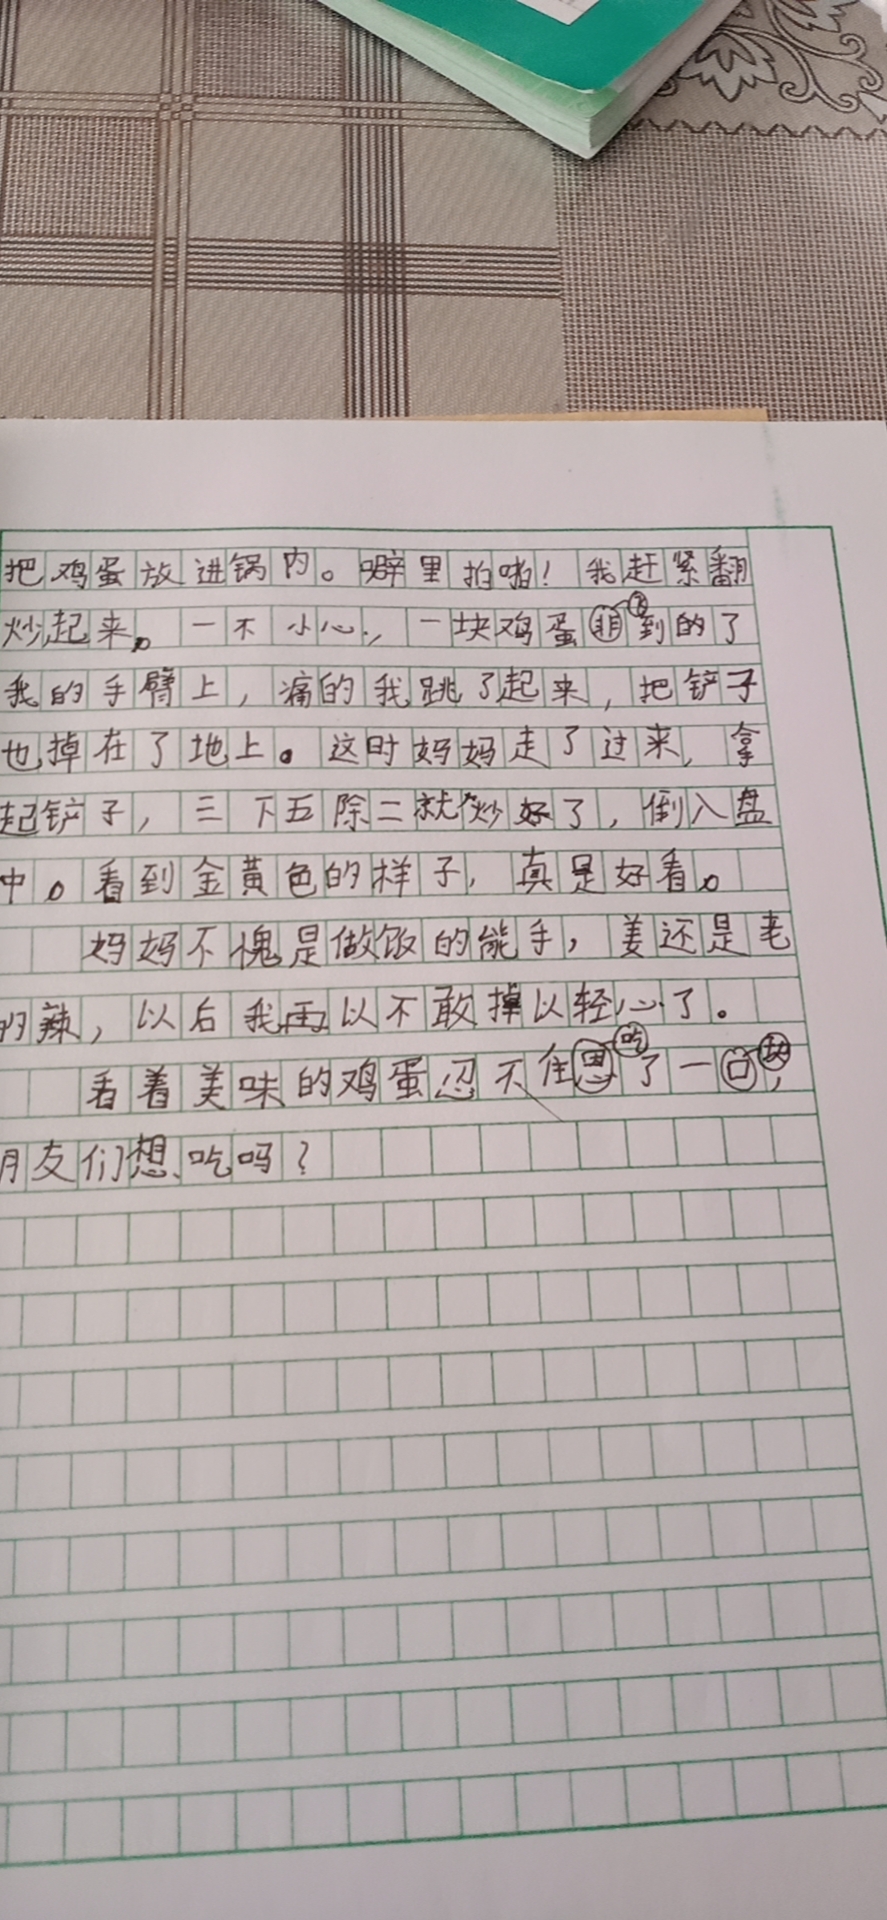 把鸡蛋放进锅内。噼里拍啪！我赶紧翻
炒起来。一不小心，一块鸡蛋飞到的了
我的手臂上，痛的我跳了起来，把铲子
也掉在了地上。这时妈妈走了过来，拿
起铲子，三下五除二就炒好了，倒入盘
中。看到金黄色的样子，真是好看。
妈妈不愧是做饭的能手，姜还是老
的辣，以后我再以不敢掉以轻心了。
看着美味的鸡蛋忍不住吃了一块，
朋友们想吃吗？